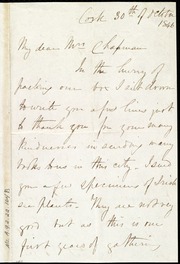 Cork 30th of October
1846
My dear Mrs Chapman
In the hurry of
packing our box I sit down
to write you a few lines just
to thank you for your many
kindnesses in sending many
books to us in this city. I send
you a few specimens of Irish
sea plants. They are not very
good but as this is our
first year of gathering